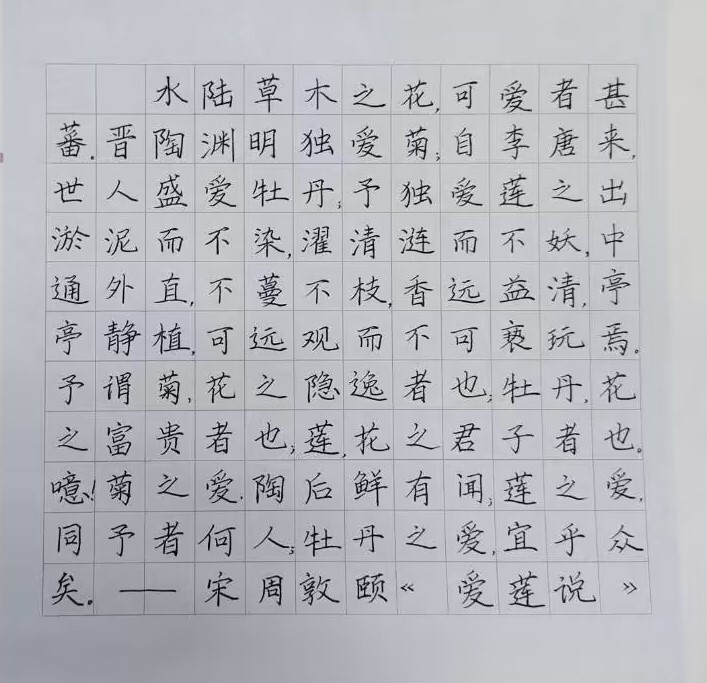 水陆草木之花,可爱者甚
蕃.晋陶渊明独爱菊;自李唐来,
世人盛爱牡丹;予独爱莲之出
淤泥而不染,濯清涟而不妖,中
通外直,不蔓不枝,香远益清,亭
亭静植,可远观而不可亵玩焉。
予谓菊,花之隐逸者也;牡丹,花
之富贵者也;莲,花之君子者也。
噫!菊之爱.陶后鲜有闻;莲之爱,
同予者何人;牡丹之爱,宜乎众
矣。——宋周敦颐《爱莲说》